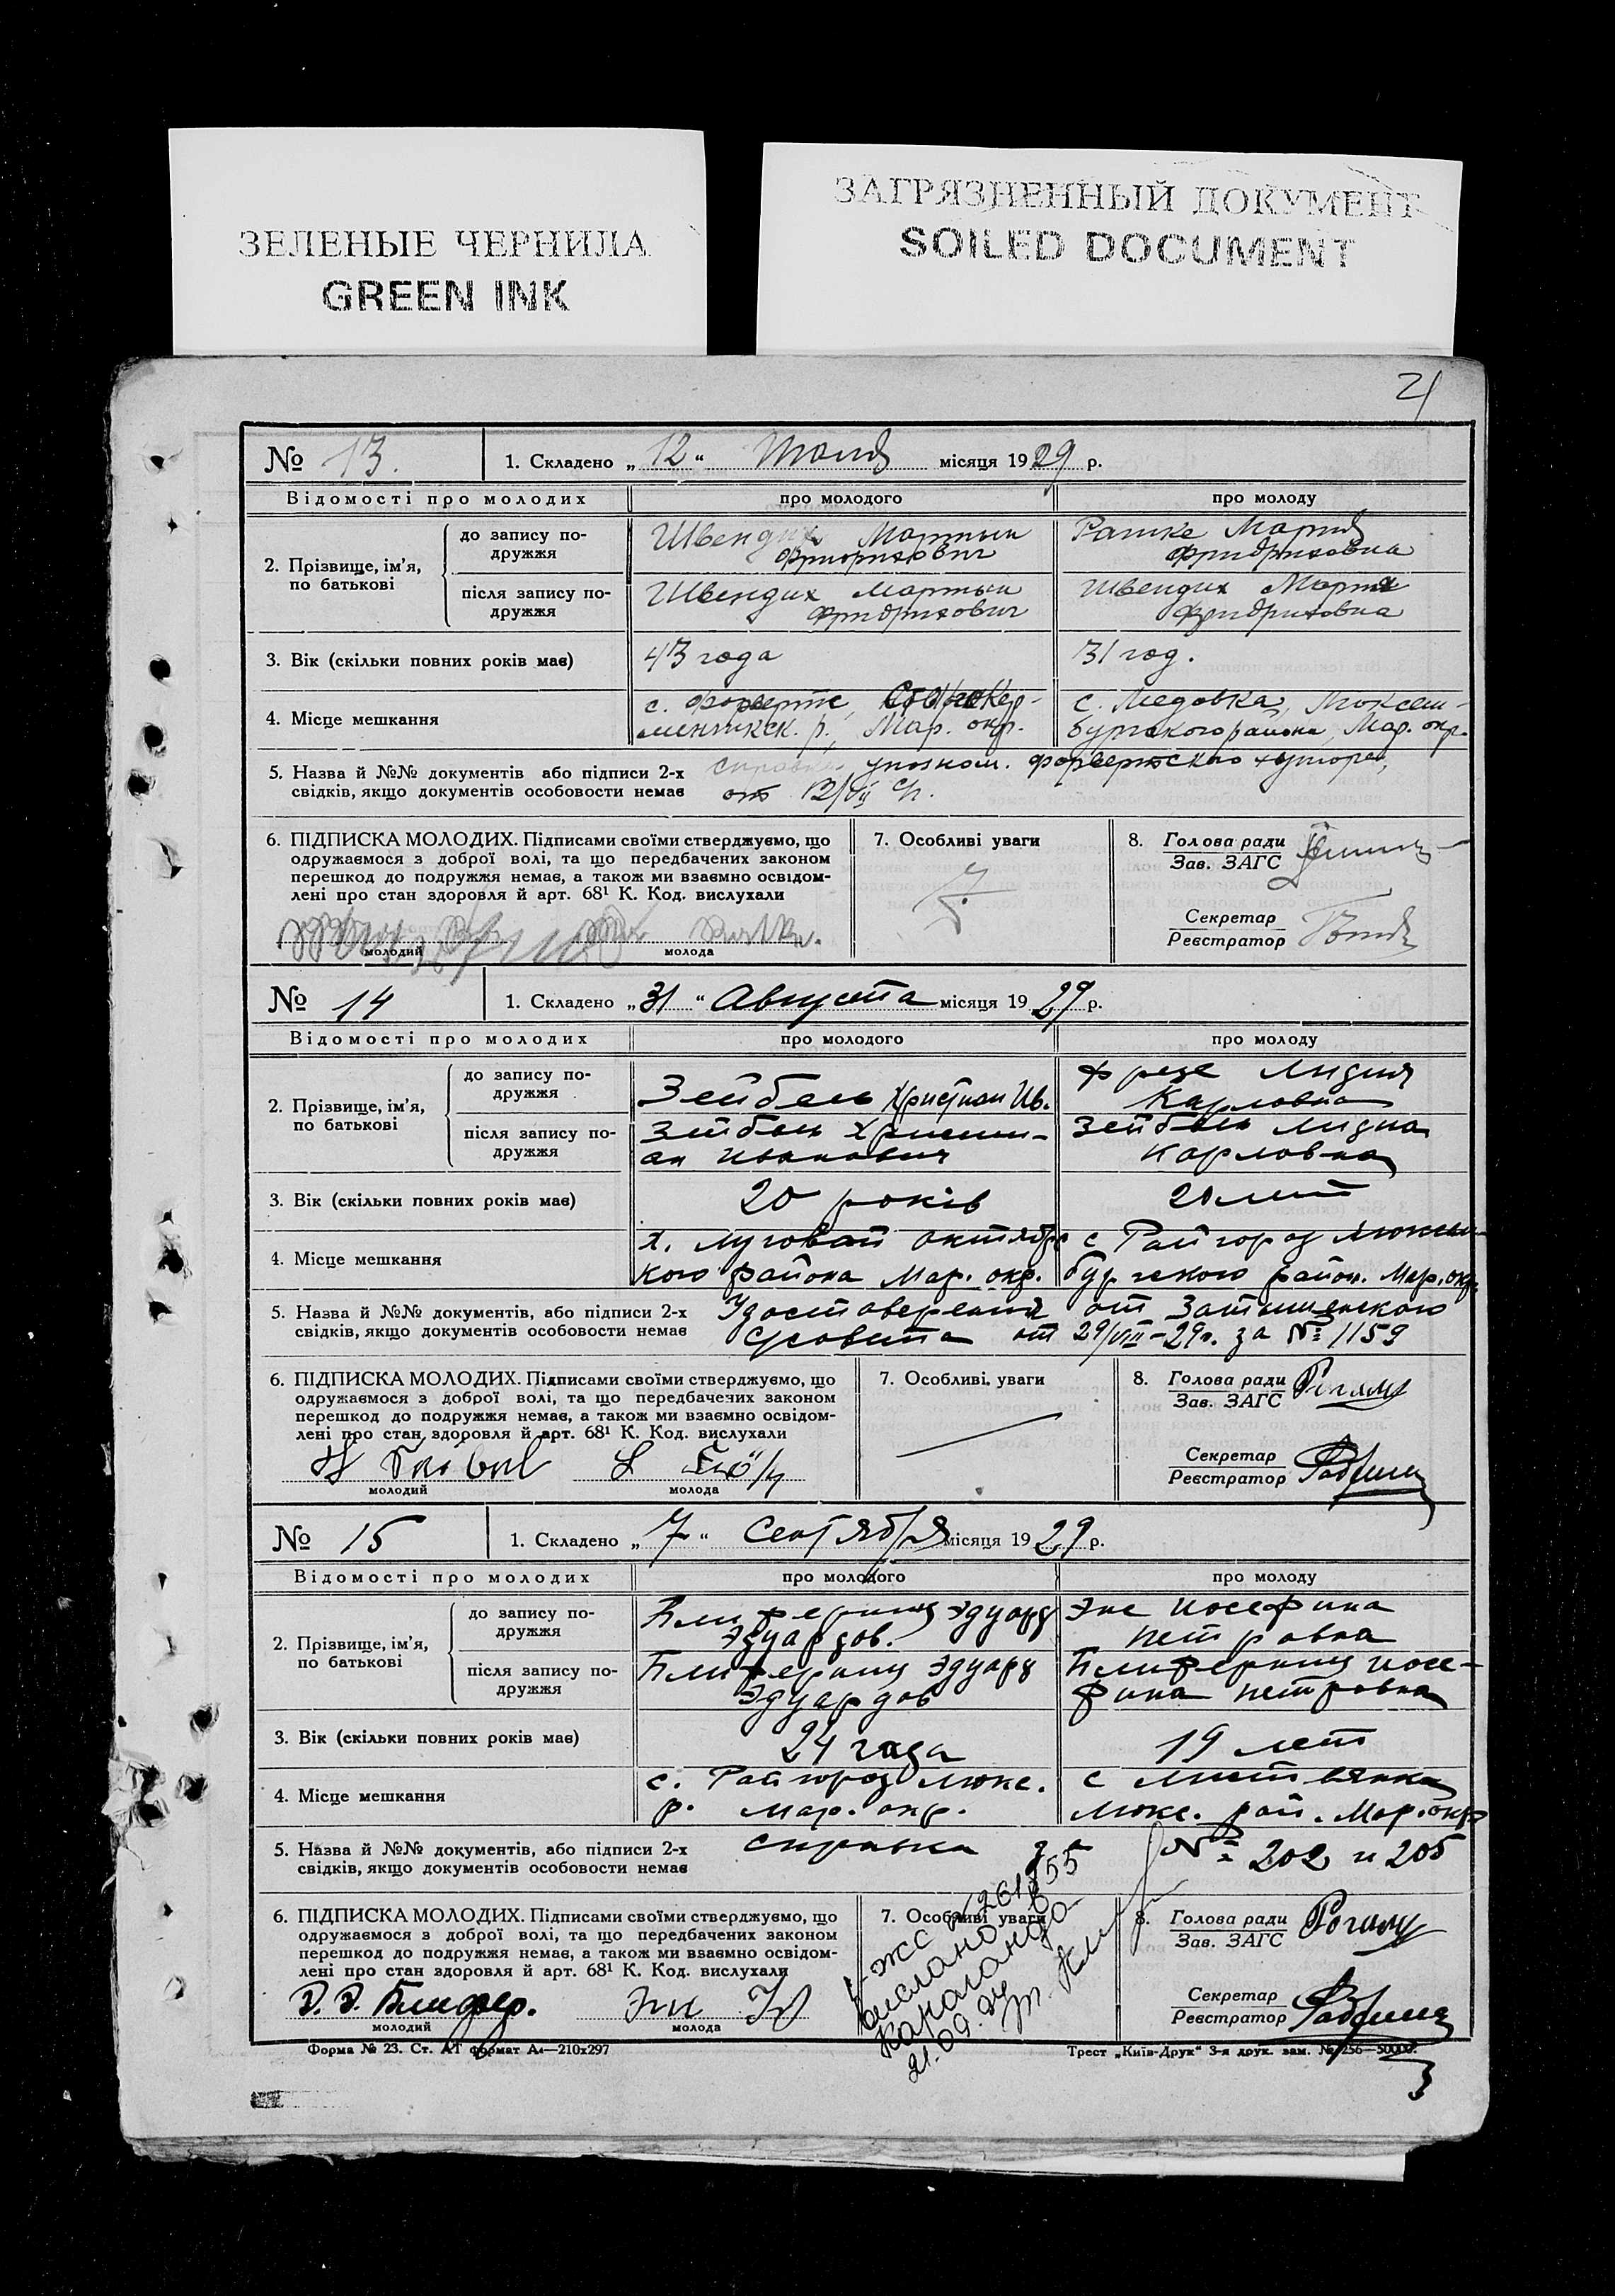 ЗЕЛЕНЫЕ ЧЕРНИЛА
GREEN INK
ЗАГРЯЗНЕННЫЙ ДОКУМЕНТ
SOILED DOCUMENT
21
№ 13. 1. Складено „12“ Июля місяця 1929 р.
Відомості про молодих про молодого про молоду
2. Прізвище, ім'я, по батькові
до запису по-
дружжя
Швендих Мартын
Фридрихович
Ратке Мария
Фридриховна
після запису по-
дружжя
Швендих Мартын
Фридрихович
Швендих Мария
Фридриховна
3. Вік (скільки повних років має) 43 года 31 год.
4. Місце мешкання
с.
менчикск. р., Мар. окр.
с. Медовка, Люксем-
бургского района, Мар. окр.
5. Назва й №№ документів або підписи 2-х
свідків, якщо документів особовости немає
справка уполном. хутора,
от 12/VII с/г.
6. ПІДПИСКА МОЛОДИХ. Підписами своїми стверджуємо, що
одружаємося з доброї волі, та що передбачених законом
перешкод до подружжя немає, а також ми взаємно освідом-
лені про стан здоровля й арт. 68¹ К. Код. вислухали
молодий молода
7. Особливі уваги
8. Голова ради
Зав. ЗАГС
Секретар
Реєстратор
№ 14 1. Складено „31“ Августа місяця 1929 р.
Відомості про молодих про молодого про молоду
2. Прізвище, ім'я, по батькові
до запису по-
дружжя
Зейбель Христиан Ив.
Фрезе Лидия
Карловна
після запису по-
дружжя
Зейбель Христи-
ан Иванович
Зейбель Лидиа
Карловна
3. Вік (скільки повних років має) 20 років 20 лет
4. Місце мешкання
х. Луговой октябрс
кого района Мар. окр.
с Райгород Люксем-
бургского район. Мар. окр.
5. Назва й №№ документів, або підписи 2-х
свідків, якщо документів особовости немає
Удостоверения от Затишенского
С/совета от 29/VIII-29г. за № 1159
6. ПІДПИСКА МОЛОДИХ. Підписами своїми стверджуємо, що
одружаємося з доброї волі, та що передбачених законом
перешкод до подружжя немає, а також ми взаємно освідом-
лені про стан здоровля й арт. 68¹ К. Код. вислухали
молодий молода
7. Особливі уваги
8. Голова ради
Зав. ЗАГС
Секретар
Реєстратор
№ 15 1. Складено „7“ Сентября місяця 1929 р.
Відомості про молодих про молодого про молоду
2. Прізвище, ім'я, по батькові
до запису по-
дружжя
Блиферниц Эдуард
Эдуардов.
Эне Иосефина
Петровна
після запису по-
дружжя
Блиферниц Эдуард
Эдуардов
Блиферниц Иосе-
фина Петровна
3. Вік (скільки повних років має) 24 года 19 лет
4. Місце мешкання
с. Райгород Люкс.
р. Мар. окр.
с Листвянка
Люкс. рай. Мар. окр
5. Назва й №№ документів, або підписи 2-х
свідків, якщо документів особовости немає
справка № 202 и 205
6. ПІДПИСКА МОЛОДИХ. Підписами своїми стверджуємо, що
одружаємося з доброї волі, та що передбачених законом
перешкод до подружжя немає, а також ми взаємно освідом-
лені про стан здоровля й арт. 68¹ К. Код. вислухали
Э. Э. Блифер.
молодий молода
7. Особливі уваги
выслано в
Караганда
8. Голова ради
Зав. ЗАГС
Секретар
Реєстратор
Форма № 23. Ст. АТ формат А4—210х297
Трест „Київ-Друк“ 3-я друк. зам. № 256—50000.